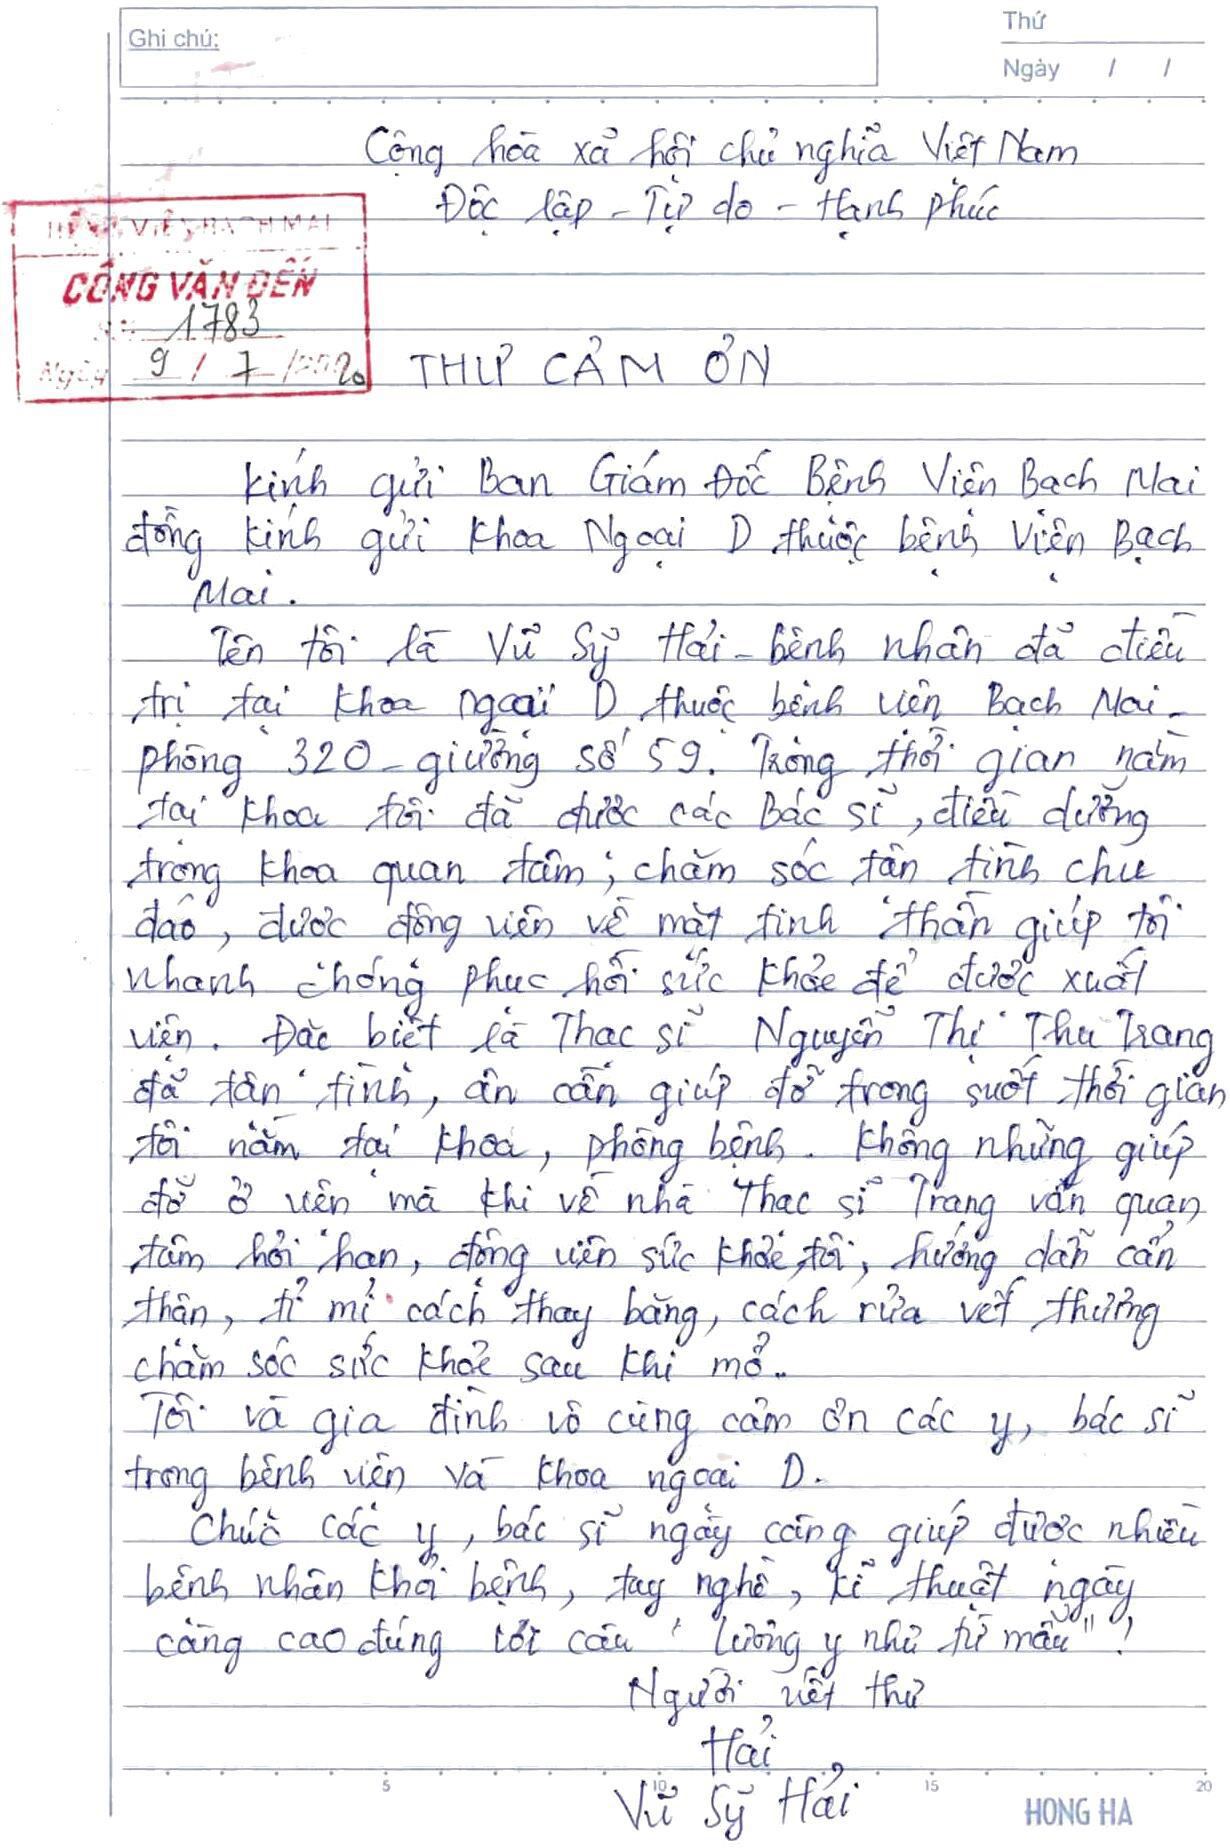 Ghi chú:
Thứ
Ngày / /
Cộng hòa xã hội chủ nghĩa Việt Nam
Độc lập - Tự do - Hạnh phúc
BỆNH VIỆN BẠCH MAI
CÔNG VĂN ĐẾN
1783
Ngày 9 / 7 / 2020
THƯ CẢM ƠN
Kính gửi Ban Giám Đốc Bệnh Viện Bạch Mai
đồng kính gửi khoa Ngoại D thuộc bệnh Viện Bạch
Mai.
Tên tôi là Vũ Sỹ Hải - bệnh nhân đã điều
trị tại khoa ngoại D thuộc bệnh viện Bạch Mai -
phòng 320 - giường số 59. Trong thời gian nằm
tại khoa tôi đã được các Bác sĩ, điều dưỡng
trong khoa quan tâm; chăm sóc tận tình chu
đáo, được động viên về mặt tinh thần giúp tôi
nhanh chóng phục hồi sức khỏe để được xuất
viện. Đặc biệt là Thạc sĩ Nguyễn Thị Thu Trang
đã tận tình, ân cần giúp đỡ trong suốt thời gian
tôi nằm tại khoa, phòng bệnh. Không những giúp
đỡ ở viện mà khi về nhà Thạc sĩ Trang vẫn quan
tâm hỏi han, động viên sức khỏe tôi, hướng dẫn cẩn
thận, tỉ mỉ cách thay băng, cách rửa vết thương
chăm sóc sức khỏe sau khi mổ..
Tôi và gia đình vô cùng cảm ơn các y, bác sĩ
trong bệnh viện và khoa ngoại D.
Chúc các y, bác sĩ ngày càng giúp được nhiều
bệnh nhân khỏi bệnh, tay nghề, kĩ thuật ngày
càng cao đúng với câu "lương y như từ mẫu"!
Người viết thư
Hải
Vũ Sỹ Hải
5 10 15 20
HONG HA